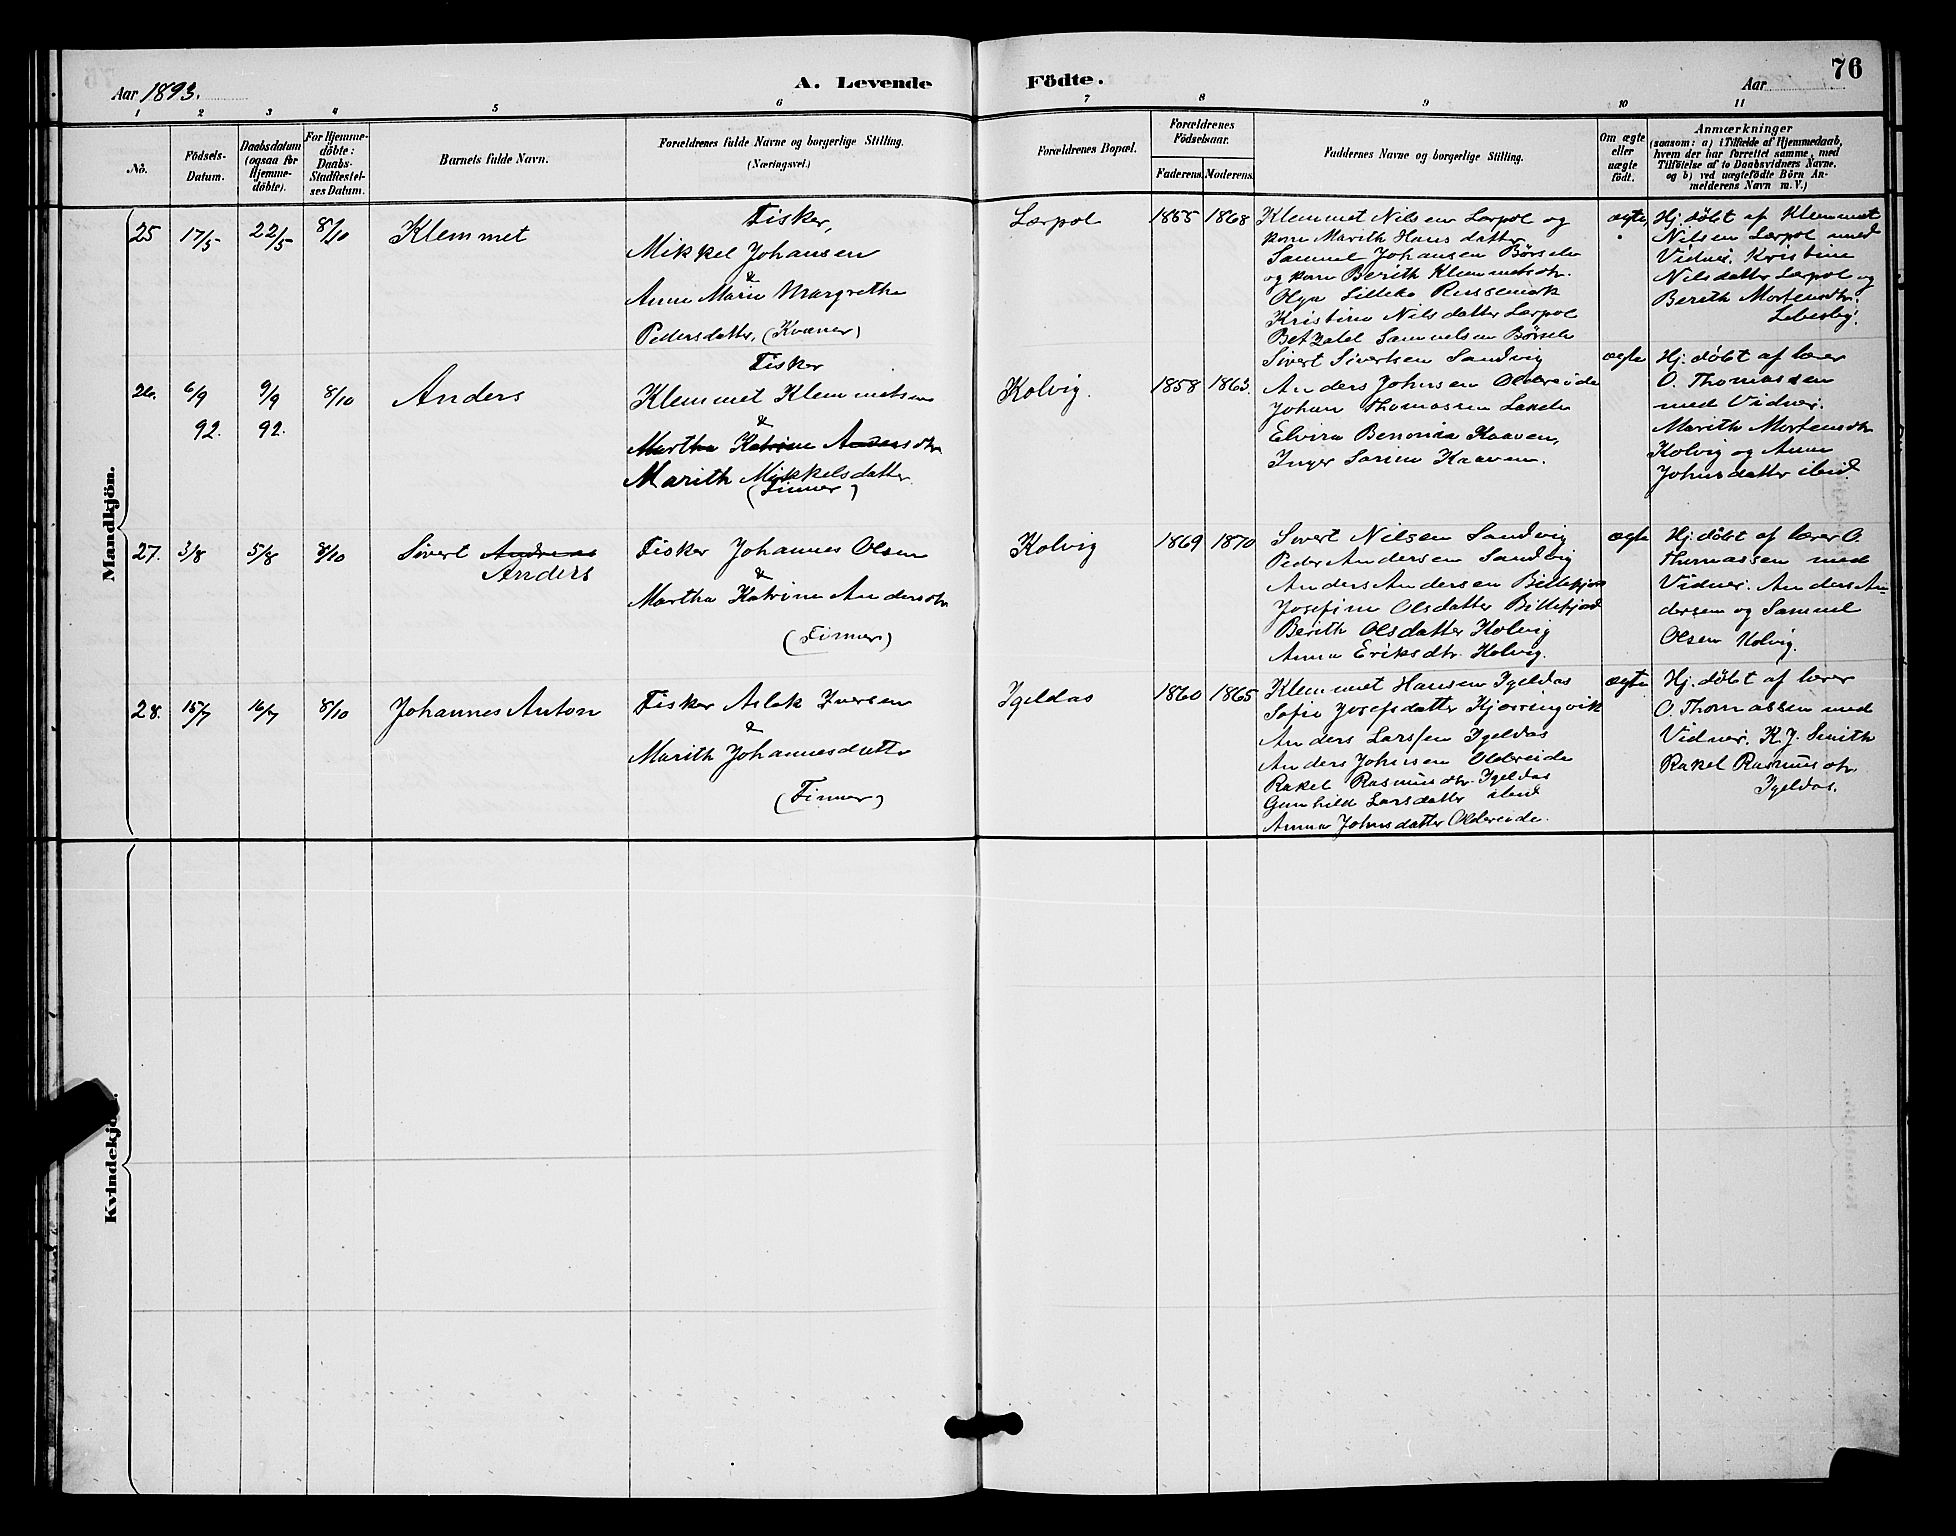 76
Aar 1893.
A. Levende Födte.
Aar
1 2 3 4 5 6 7 8 9 10 11
No.
Födsels-
Datum.
Daabsdatum
(ogsaa for
Hjemme-
döbte).
For Hjemme-
döbte:
Daabs-
Stadfæstel-
ses Datum.
Barnets fulde Navn.
Forældrenes fulde Navne og borgerlige Stilling.
(Næringsvei.)
Forældrenes Bopæl.
Forældrenes
Födselsaar.
Faderens. Moderens.
Faddernes Navne og borgerlige Stilling.
Om ægte
eller
uægte
födt.
Anmærkninger
(saasom: a) i Tilfælde af Hjemmedaab,
hvem der har forrettet samme, med
Tilföielse af to Daabsvidners Navne,
og b) ved uægtefödte Börn An-
melderens Navn m. V.)
Mandkjön.
25 17/5 22/5 8/10 Klemmet
Fisker,
Mikkel Johansen
&
Anne Marie Margrethe
Pedersdatter, (Kvæner)
Lærpol 1855 1868
Klemmet Nilsen Lærpol og
kone Marith Hansdatter
Samuel Johansen Börselv
og kone Berith Klemmetsdtr.
Olga Russemark
Kristine Nilsdatter Lærpol
Samuelsen Börselv
ægte,
Hj. döbt af Klemmet
Nilsen Lærpol med
Vidner. Kristine
Nilsdatter Lærpol og
Berith Mortensdtr.
Lebesby.
26. 6/9 92. 9/9 92. 8/10 Anders
Fisker
Klemmet Klemmetsen
&
Martha Katrine Andersdtr
Marith Mikkelsdatter
(Finner)
Kolvig. 1858 1863.
Sivert Sivertsen Sandvig
Anders Johnsen Oldereide
Johan Thomassen
Elvira Benonia Kaaven,
Inger Sarine Kaaven.
ægte
Hj. döbt af lærer
O. Thomassen
med Vidner.
Marith Mortensdtr
Kolvig og Anne
Johnsdatter ibid.
27. 3/8 5/8 8/10 Sivert Andreas
Anders
Fisker Johannes Olsen
&
Martha Katrine Andersdtr
(Finner)
Kolvig 1869 1870
Sivert Nilsen Sandvig
Peder Andersen Sandvig
Anders Andersen Billefjord
Josefine Olsdatter Billefjord
Berith Olsdatter Kolvig
Anna Eriksdtr. Kolvig.
ægte
Hj. döbt af lærer O.
Thomassen med
Vidner. Anders An-
dersen og Samuel
Olsen Kolvig.
28. 15/7 16/7 8/10 Johannes Anton
Fisker Aslak Iversen
&
Marith Johannesdatter
(Finner)
Igeldas 1860 1865
Klemmet Hansen Igeldas
Sofie Josefsdatter Kjærringvik
Anders Larssen Igeldas
Anders Johnsen Oldereide
Rakel Rasmusdtr. Igeldas
Gunhild Larsdatter ibid
Anna Johnsdatter Oldereide.
ægte
Hj. döbt af lærer
O. Thomassen med
Vidner. K. J. Smith
Rakel Rasmusdtr.
Igeldas.
Kvindekjön.